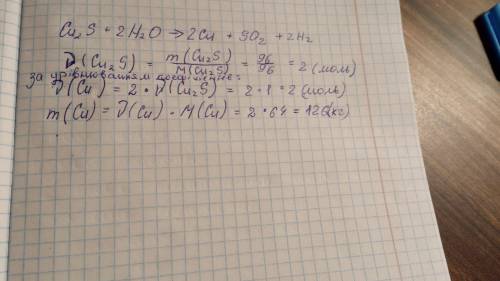 Cu₂S + 2H₂O → 2Cu + SO₂ + 2H₂
ν(Cu₂S) = m(Cu₂S)/M(Cu₂S) = 96/96 = 2 (моль)
за рівнянням
ν(Cu) = 2 · ν(Cu₂S) = 2 · 1 = 2 (моль)
m(Cu) = ν(Cu) · M(Cu) = 2 · 64 = 128 (кг)